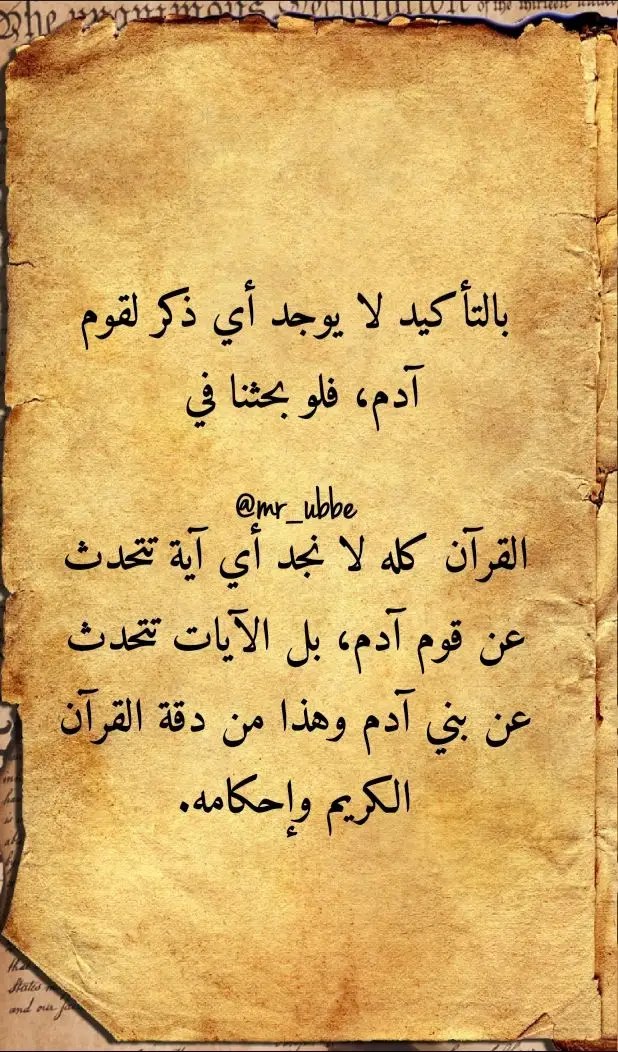 The unanimous Declaration of the thirteen united
بالتأكيد لا يوجد أي ذكر لقوم
آدم، فلو بحثنا في
@mr_ubbe
القرآن كله لا نجد أي آية تتحدث
عن قوم آدم، بل الآيات تتحدث
عن بني آدم وهذا من دقة القرآن
الكريم وإحكامه.
States
and our